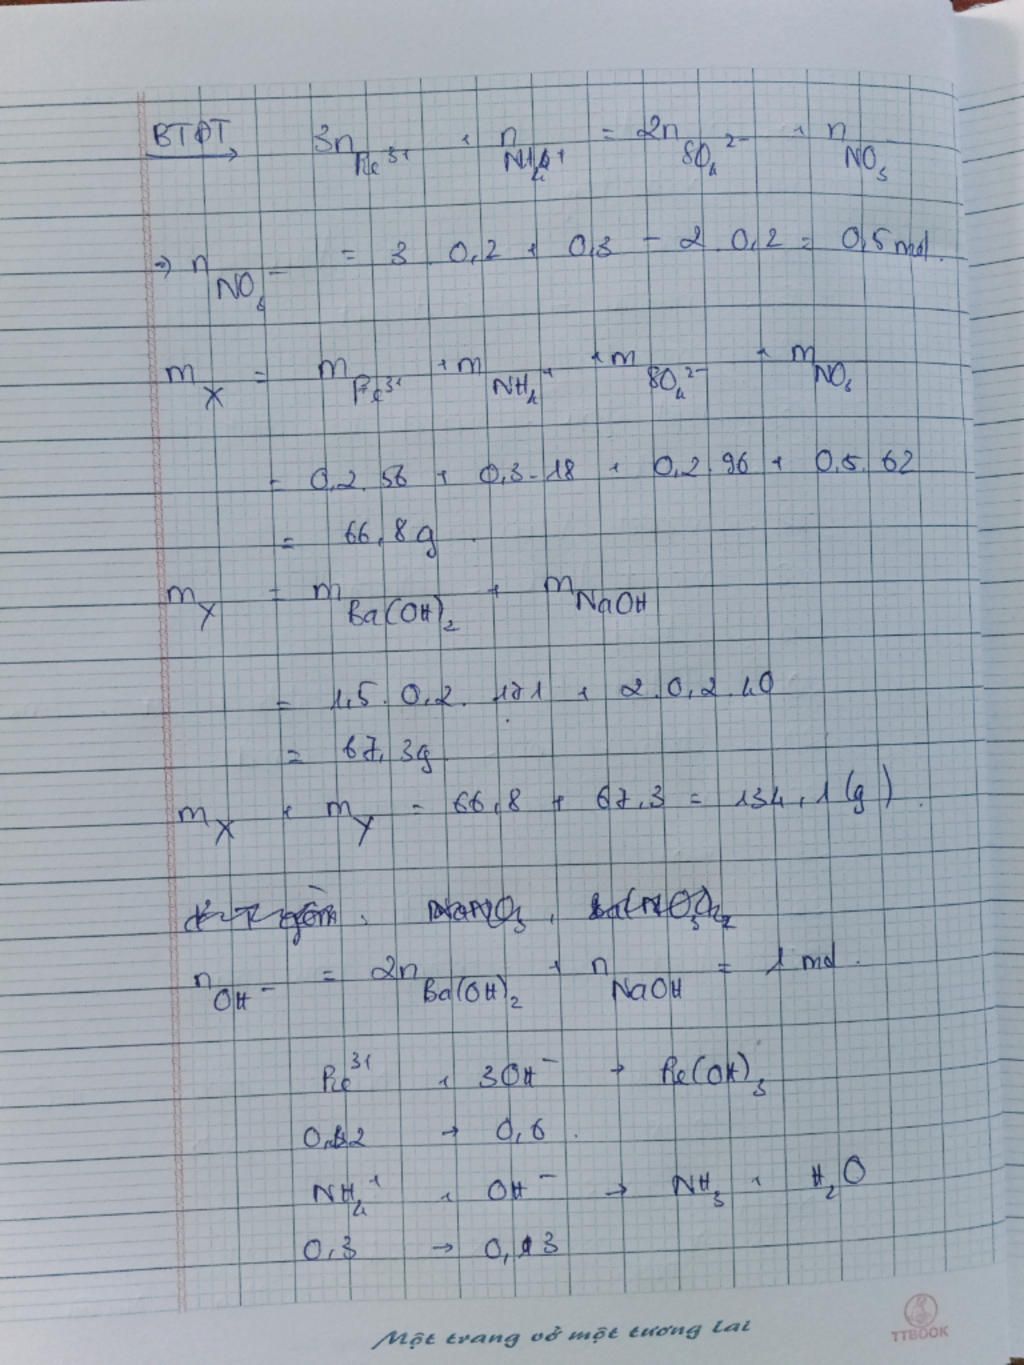 BTĐT 3n Fe³⁺ + n NH₄⁺ = 2n SO₄²⁻ + n NO₃
=> n NO₃⁻ = 3 . 0,2 + 0,3 - 2 . 0,2 = 0,5 mol.
m X = m Fe³⁺ + m NH₄⁺ + m SO₄²⁻ + m NO₃
= 0,2 . 56 + 0,3 . 18 + 0,2 . 96 + 0,5 . 62
= 66,8g
m Y = m Ba(OH)₂ + m NaOH
= 1,5 . 0,2 . 171 + 2 . 0,2 . 40
= 67,3g
m X + m Y = 66,8 + 67,3 = 134,1 (g)
n OH⁻ = 2n Ba(OH)₂ + n NaOH = 1 mol.
Fe³⁺ + 3OH⁻ → Fe(OH)₃
0,2 → 0,6
NH₄⁺ + OH⁻ → NH₃ + H₂O
0,3 → 0,3
Một trang vở một tương lai
TTBOOK